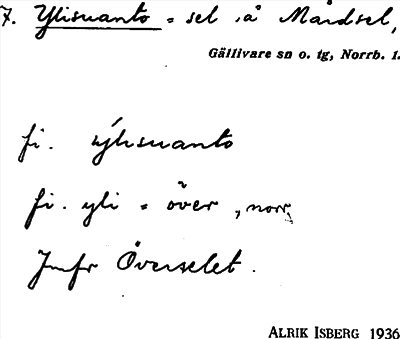 7. Ylisuanto = sel i å Mårdsel,
Gällivare sn o. tg, Norrb. l.
fi. ylisuanto
fi. yli = över, norr,
Jmfr Överselet.
ALRIK ISBERG 1936